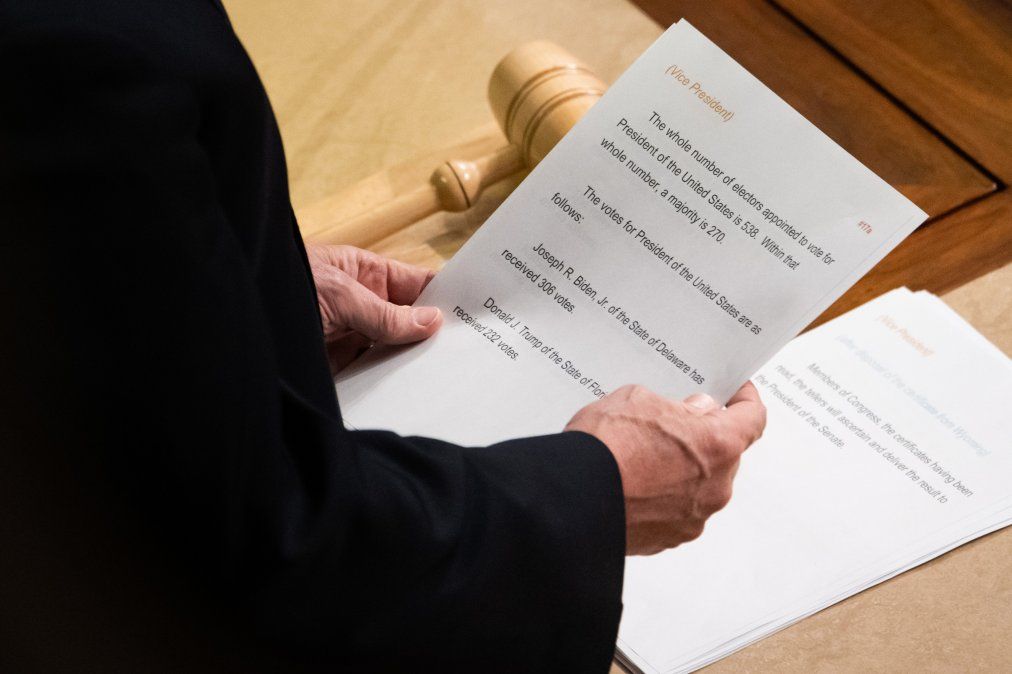 (Vice President)
#17a
The whole number of electors appointed to vote for
President of the United States is 538. Within that
whole number, a majority is 270.
The votes for President of the United States are as
follows:
Joseph R. Biden, Jr. of the State of Delaware has
received 306 votes.
Donald J. Trump of the State of
received 232 votes.
(Vice President)
(after disposal of the certificate from Wyoming)
Members of Congress, the certificates having been
read, the tellers will ascertain and deliver the result to
the President of the Senate.